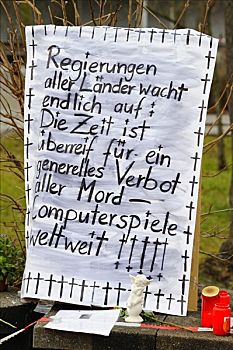 Regierungen
aller Länder wacht
endlich auf!
Die Zeit ist
überreif für ein
generelles Verbot
aller Mord-
Computerspiele
weltweit !!!!!